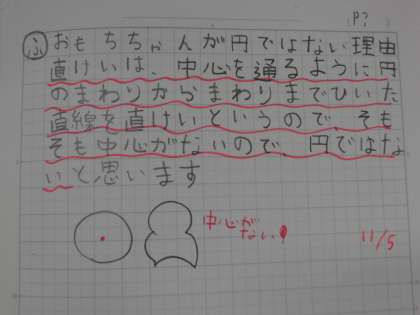 P?
ふ おもちちゃんが円ではない理由
直けいは、中心を通るように円
のまわりからまわりまでひいた
直線を直けいというので、そも
そも中心がないので、円ではな
いと思います
中心が
ない!
11/5